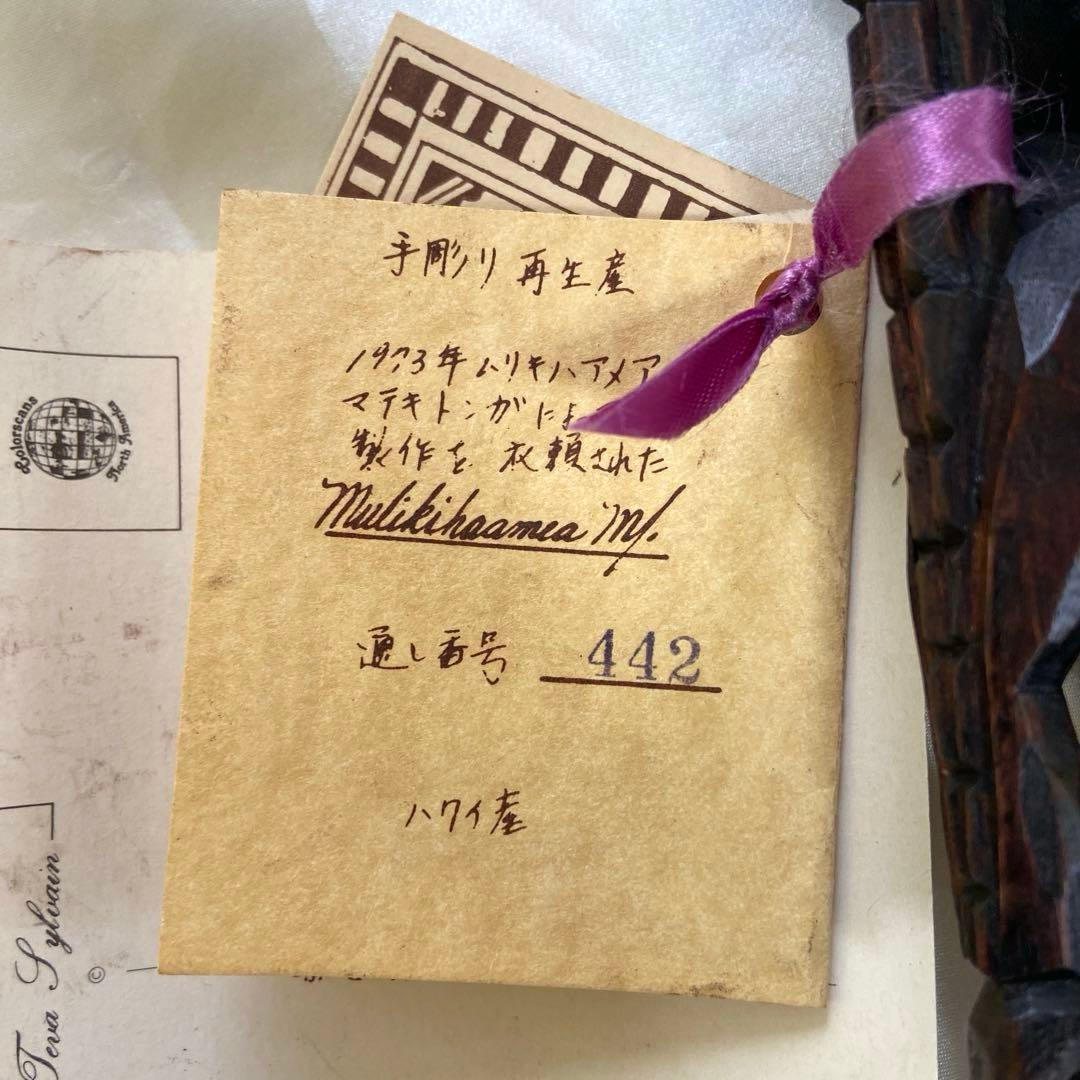 手彫り 再生産
1973年 ムリキハアメア
マテキトンガによ
製作を 依頼された
Mulikihaamea M/.
通し番号 442
ハワイ産
Colorscans
North America
Teva Sylvain
©